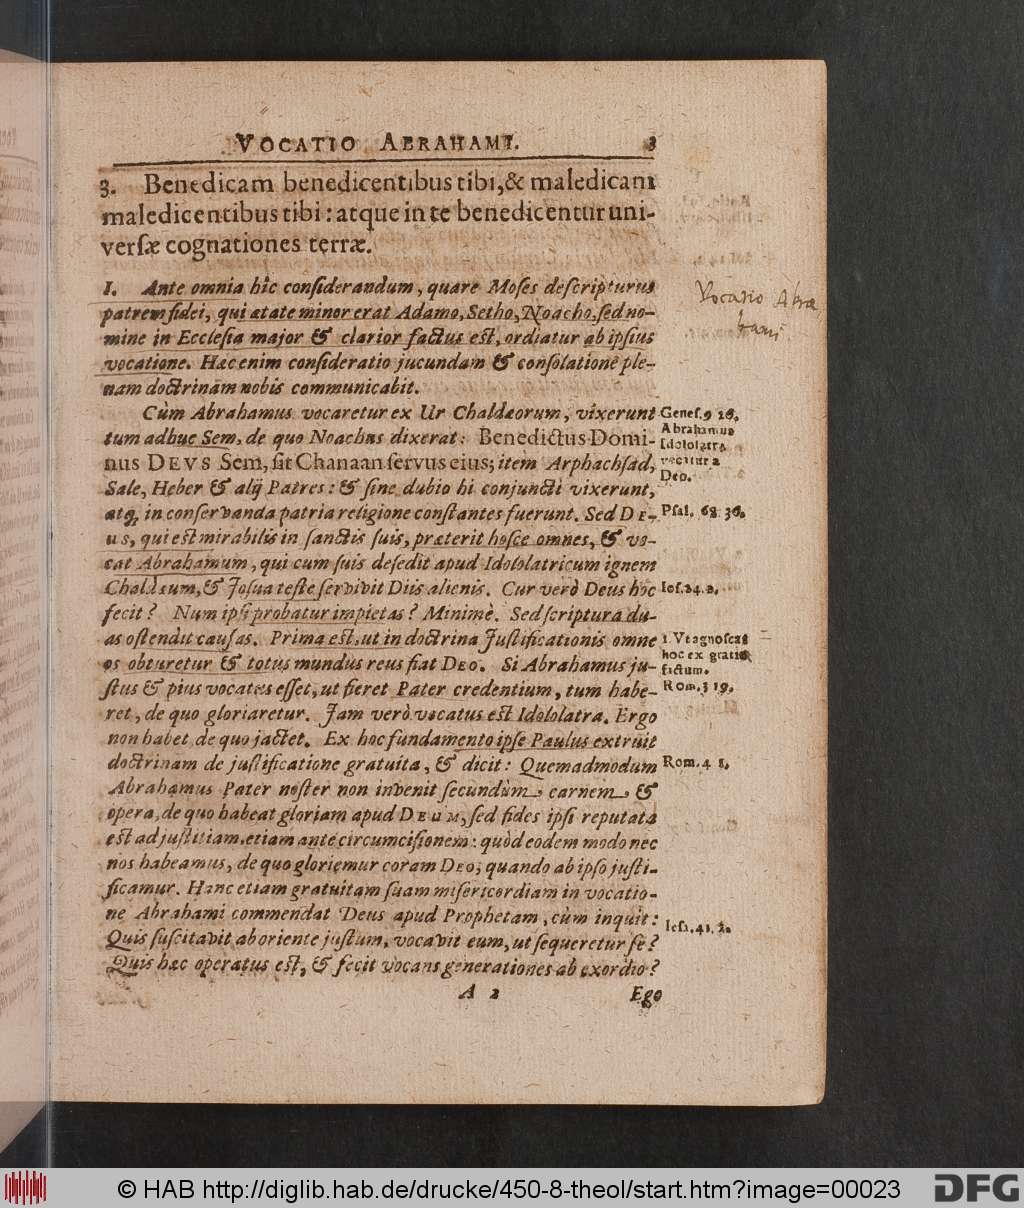 VOCATIO ABRAHAMI. 3
3. Benedicam benedicentibus tibi, & maledicam
maledicentibus tibi: atque in te benedicentur uni-
verſæ cognationes terræ.
I. Ante omnia hîc conſiderandum, quare Moſes deſcripturus
patrem fidei, qui ætate minor erat Adamo, Setho, Noacho, ſed no-
mine in Eccleſia major & clarior factus eſt, ordiatur ab ipſius
vocatione. Hæc enim conſideratio jucundam & conſolatione ple-
nam doctrinam nobis communicabit.
Vocatio Abra
hami
Cùm Abrahamus vocaretur ex Ur Chaldæorum, vixerunt
tum adhuc Sem, de quo Noachus dixerat: Benedictus Domi-
nus DEVS Sem, ſit Chanaan ſervus eius; item Arphachſad,
Sale, Heber & alij Patres: & ſine dubio hi conjuncti vixerunt,
atq; in conſervanda patria religione conſtantes fuerunt. Sed DE-
US, qui eſt mirabilis in ſanctis ſuis, præterit hoſce omnes, & vo-
cat Abrahamum, qui cum ſuis deſedit apud Idololatricum ignem
Chaldæum, & Joſua teſte ſervivit Diis alienis. Cur verò Deus hoc
fecit? Num ipſi probatur impietas? Minimè. Sed ſcriptura du-
as oſtendit cauſas. Prima eſt, ut in doctrina Juſtificationis omne
os obturetur & totus mundus reus fiat DEO. Si Abrahamus ju-
ſtus & pius vocatus eſſet, ut fieret Pater credentium, tum habe-
ret, de quo gloriaretur. Jam verò vocatus eſt Idololatra. Ergo
non habet de quo jactet. Ex hoc fundamento ipſe Paulus extruit
doctrinam de juſtificatione gratuita, & dicit: Quemadmodum
Abrahamus Pater noſter non invenit ſecundùm carnem &
opera, de quo habeat gloriam apud DEUM, ſed fides ipſi reputata
eſt ad juſtitiam, etiam ante circumciſionem: quòd eodem modo nec
nos habeamus, de quo gloriemur coram DEO, quando ab ipſo juſti-
ficamur. Hanc etiam gratuitam ſuam miſericordiam in vocatio-
ne Abrahami commendat Deus apud Prophetam, cùm inquit:
Quis ſuſcitavit ab oriente juſtum, vocavit eum, ut ſequeretur ſe?
Quis hæc operatus eſt, & fecit vocans generationes ab exordio?
A 2 Ego
Geneſ. 9 26.
Abrahamus
Idololatra
vocatur a
Deo.
Pſal. 68 36.
Ioſ. 24. 2.
1. Vt agnoſcat
hoc ex gratia
fictum.
Rom. 3 19.
Rom. 4 1.
Ieſ. 41. 2.
© HAB http://diglib.hab.de/drucke/450-8-theol/start.htm?image=00023
DFG